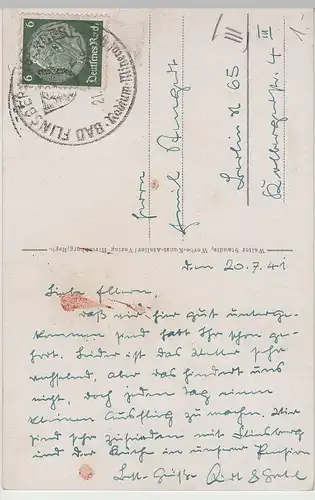 6 Deutsches Reich 6
BAD FLINSBERG
Radium-
III
1.-
Herrn
Emil
Berlin N 65
Kolbergerstr. 4 III
Walter Staudte, Werbe-Kunst-Atelier/Verlag, Hirschberg/Rsgb.
den 20.7.41
Liebe Eltern,
daß wir hier gut unterge-
kommen sind habt Ihr schon ge-
hört. Leider ist das Wetter sehr
wechselnd, aber das hindert uns
nicht, doch jeden Tag einen
kleinen Ausflug zu machen. Wir
sind sehr zufrieden mit Flinsberg
und der Küche in unserer Pension
Grüße